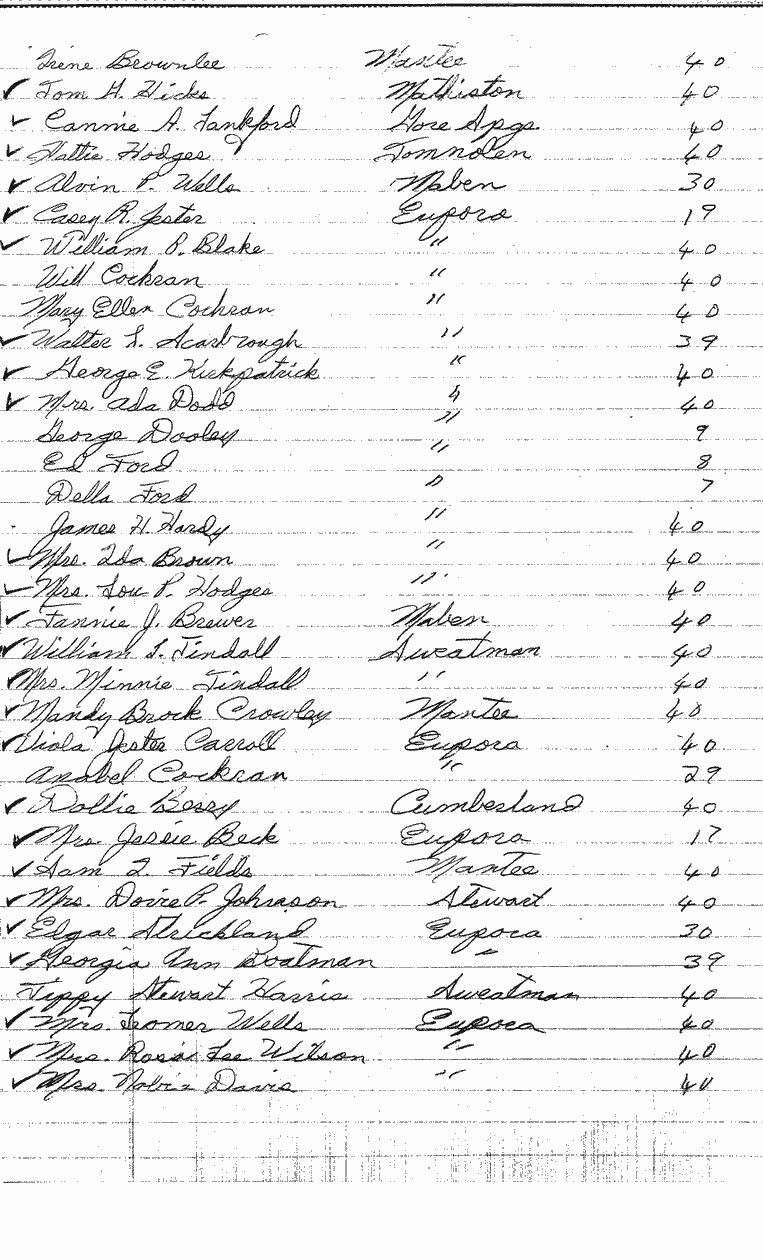 Irene Brownlee Mantee 40
✓ Tom H. Hicks Mathiston 40
✓ Cannie A. Lankford Gore Spgs. 40
✓ Hattie Hodges Tomnolen 40
✓ Alvin P. Wells Maben 30
✓ Casey R. Jester Eupora 19
✓ William P. Blake " 40
Will Cochran " 40
Mary Ellen Cochran " 40
✓ Walter L. Scarbrough " 39
✓ George E. Kirkpatrick " 40
✓ Mrs. Ada Dodd " 40
George Dooley " 9
Ed Ford " 8
Della Ford " 7
James H. Hardy " 40
✓ Mrs. Ida Brown " 40
✓ Mrs. Lou P. Hodges " 40
✓ Fannie J. Brewer Maben 40
✓ William L. Tindall Sweatman 40
✓ Mrs. Minnie Tindall " 40
✓ Mandy Brock Crowley Mantee 40
✓ Viola Jester Carroll Eupora 40
Anabel Cockran " 29
✓ Dollie Berry Cumberland 40
✓ Mrs. Jessie Beck Eupora 17
✓ Sam I. Fields Mantee 40
✓ Mrs. P. Johnson Stewart 40
✓ Edgar Strickland Eupora 30
✓ Georgia Ann Boatman " 39
Tippy Stewart Harris Sweatman 40
✓ Mrs. Homer Wells Eupora 40
✓ Mrs. Rosie Lee Wilson " 40
✓ Mrs. Davis " 40